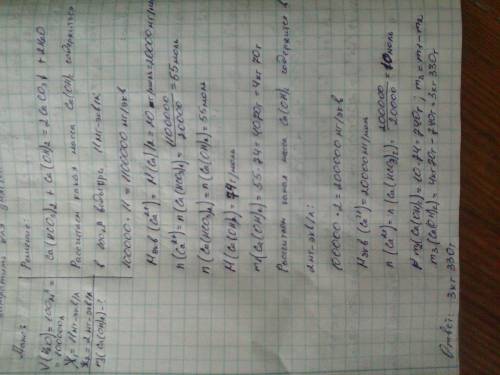 Дано:
V(H₂O) = 100 м³ =
= 100000 л
X₁ = 11 мг-экв/л
X₂ = 2 мг-экв/л
m(Ca(OH)₂) - ?
Решение:
Ca(HCO₃)₂ + Ca(OH)₂ = 2CaCO₃↓ + 2H₂O
Рассчитаем какая масса Ca(OH)₂ содержится
в воде 11 мг-экв/л
100000 · 11 = 1100000 мг/экв
n(Ca²⁺) = n(Ca(HCO₃)₂) = 1100000/20000 = 55 моль
n(Ca(HCO₃)₂) = n(Ca(OH)₂) = 55 моль
M(Ca(OH)₂) = 74 г/моль
m₁(Ca(OH)₂) = 55 · 74 = 4070 г = 4 кг 70 г
Рассчитаем какая масса Ca(OH)₂ содержится в
2 мг-экв/л
100000 · 2 = 200000 мг/экв
Mэкв(Ca²⁺) = 20000 мг/моль
n(Ca²⁺) = n(Ca(HCO₃)₂) = 200000/20000 = 10 моль
m₂(Ca(OH)₂) = 10 · 74 = 740 г; m₃ = m₁ - m₂
m₃(Ca(OH)₂) = 4 кг 70 г - 740 г = 3 кг 330 г
Ответ: 3 кг 330 г